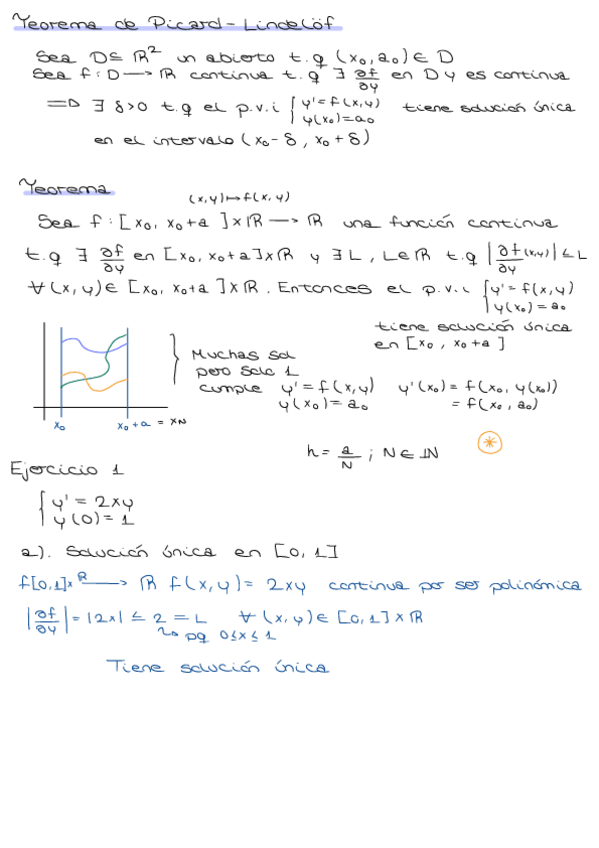 Teorema de Picard-Lindelöf
Sea D⊆ ℝ² un abierto t.q (x₀,a₀) ∈ D
Sea f: D → ℝ continua t.q ∃ ∂f/∂y en D y es continua
⇒ ∃ δ>0 t.q el p.v.i { y' = f(x,y) y(x₀)=a₀ tiene solución única
en el intervalo (x₀-δ, x₀+δ)
Teorema
(x,y)↦f(x,y)
Sea f: [x₀, x₀+a]xℝ → ℝ una función continua
t.q ∃ ∂f/∂y en [x₀, x₀+a]xℝ y ∃L, L∈ℝ t.q |∂f/∂y (x,y)| ≤ L
∀(x,y)∈ [x₀, x₀+a]xℝ. Entonces el p.v.i { y' = f(x,y) y(x₀)=a₀
tiene solución única
en [x₀, x₀+a]
Muchas sol
pero solo 1
cumple y' = f(x,y) y'(x₀) = f(x₀, y(x₀))
y(x₀) = a₀ = f(x₀, a₀)
x₀ x₀+a = xN
h = a/N ; N∈ℕ *
Ejercicio 1
{ y' = 2xy
y(0) = 1
a). Solución única en [0,1]
f[0,1]xℝ → ℝ f(x,y) = 2xy continua por ser polinómica
|∂f/∂y| = |2x| ≤ 2 = L ∀(x,y)∈ [0,1]xℝ
pq 0≤x≤1
Tiene solución única